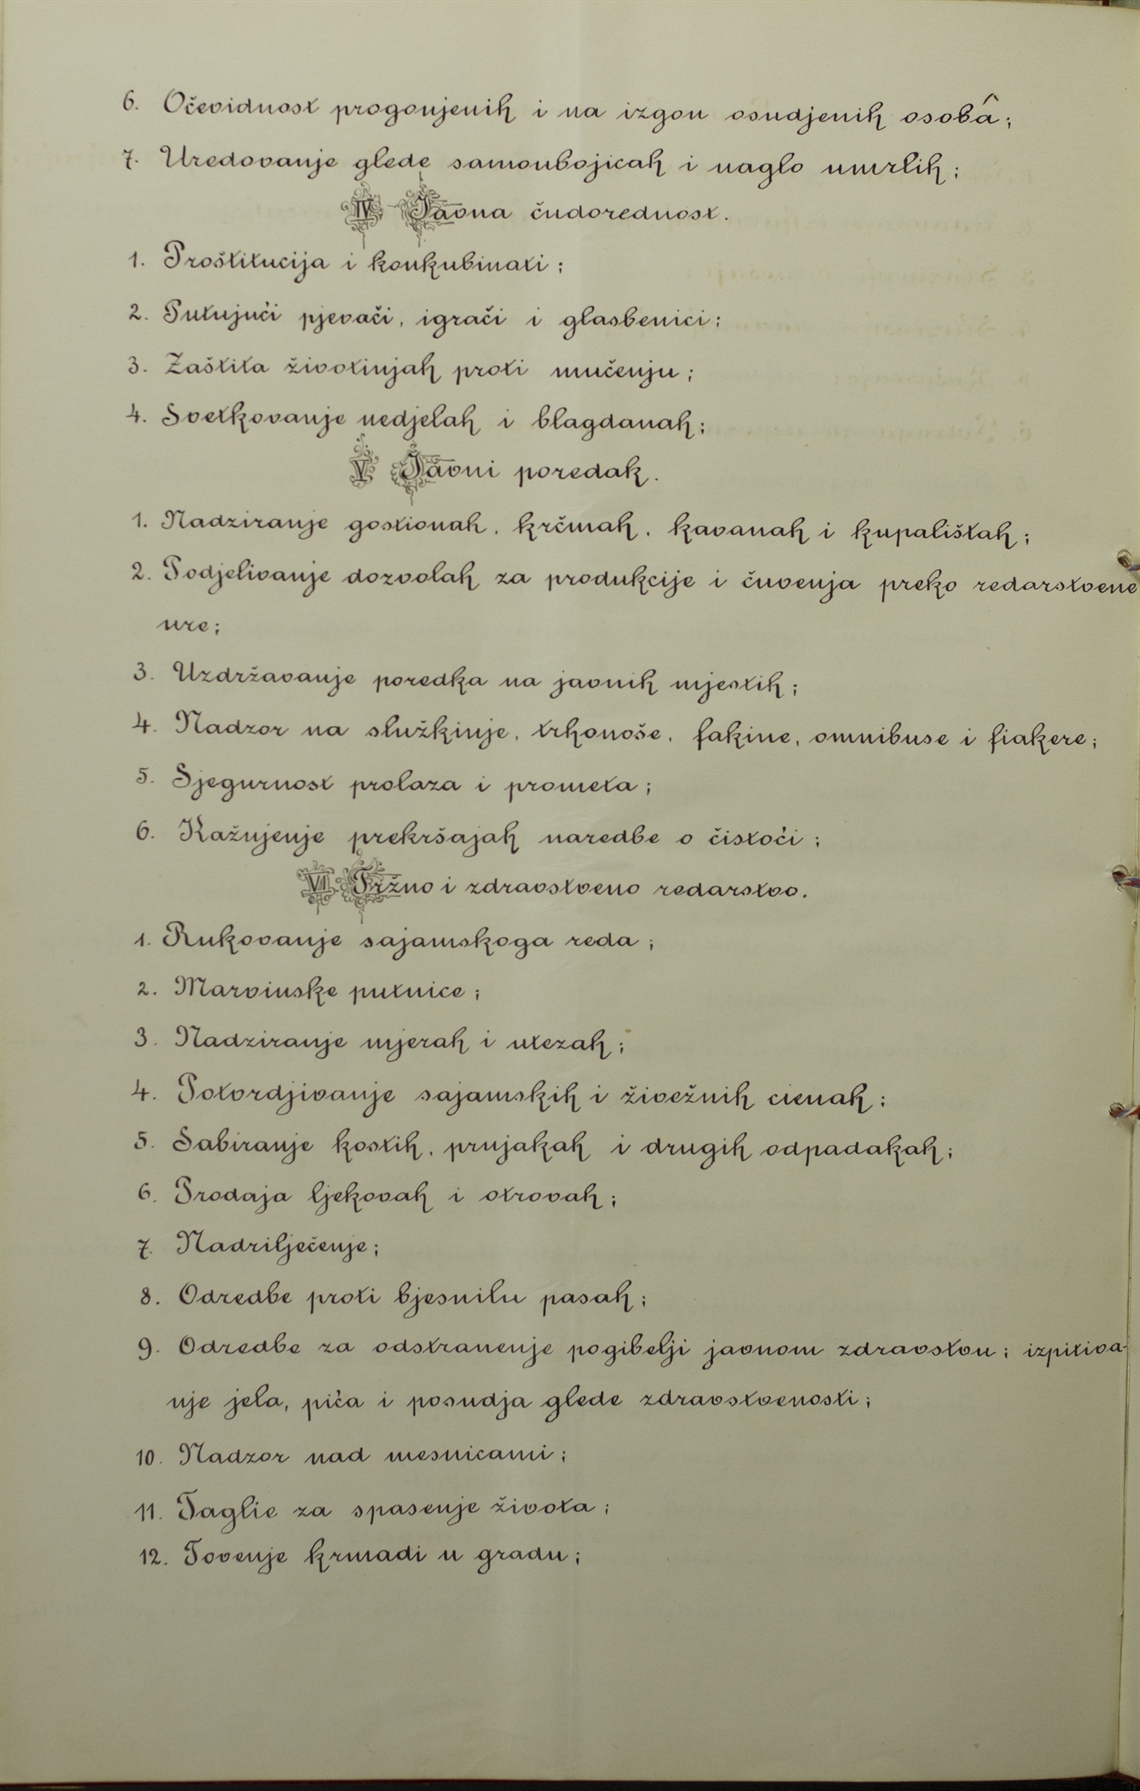 6. Očevidnost progonjenih i na izgon osudjenih osobâ;
7. Uredovanje glede samoubojicah i naglo umrlih;
IV Javna ćudorednost.
1. Proštitucija i konkubinati;
2. Putujući pjevači, igrači i glasbenici;
3. Zaštita životinjah proti mučenju;
4. Svetkovanje nedjelah i blagdanah;
V Javni poredak.
1. Nadziranje gostionah, krčmah, kavanah i kupalištah;
2. Podjelivanje dozvolah za produkcije i čuvenja preko redarstvene
ure;
3. Uzdržavanje poredka na javnih mjestih;
4. Nadzor na služkinje, trhonoše, fakine, omnibuse i fiakere;
5. Sjegurnost prolaza i prometa;
6. Kažnjenje prekršajah naredbe o čistoći;
VI Tržno i zdravstveno redarstvo.
1. Rukovanje sajamskoga reda;
2. Marvinske putnice;
3. Nadziranje mjerah i utezah;
4. Potvrdjivanje sajamskih i živežnih cienah;
5. Sabiranje kostih, prnjakah i drugih odpadakah;
6. Prodaja ljekovah i otrovah;
7. Nadrilječenje;
8. Odredbe proti bjesnilu pasah;
9. Odredbe za odstranenje pogibelji javnom zdravstvu; izpitiva-
nje jela, pića i posudja glede zdravstvenosti;
10. Nadzor nad mesnicami;
11. Taglie za spasenje života;
12. Tovenje krmadi u gradu;